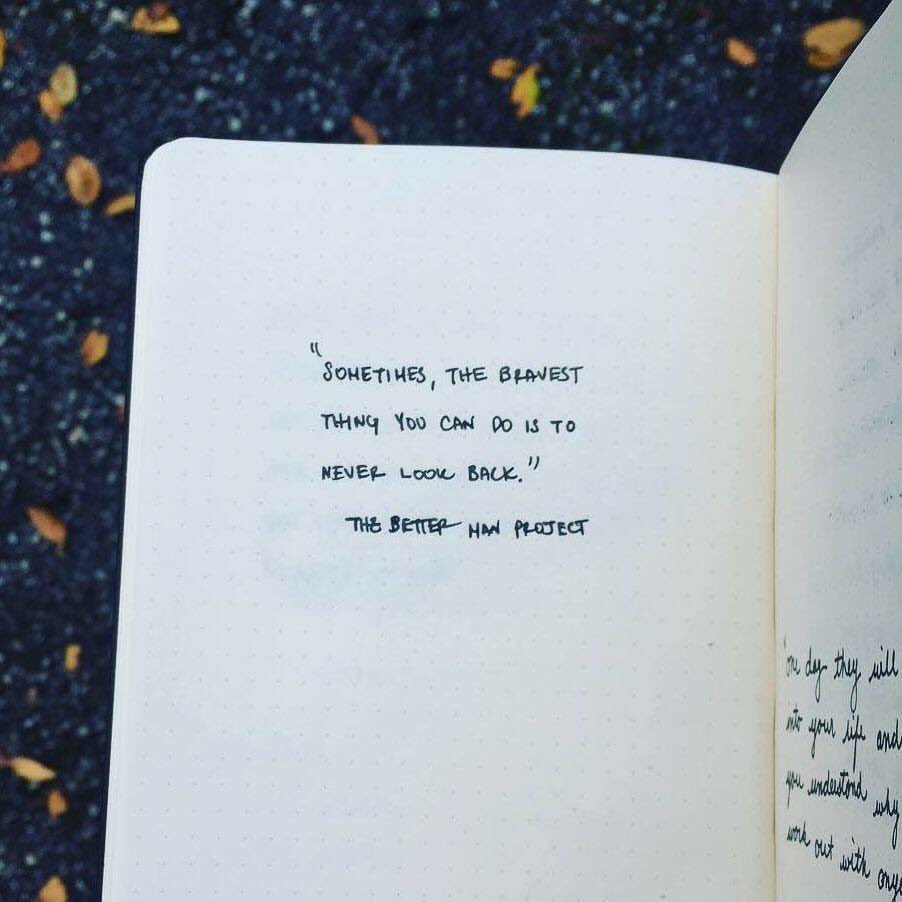 "SOMETIMES, THE BRAVEST
THING YOU CAN DO IS TO
NEVER LOOK BACK."
THE BETTER MAN PROJECT
one day they will
into your life and
you understand why
work out with